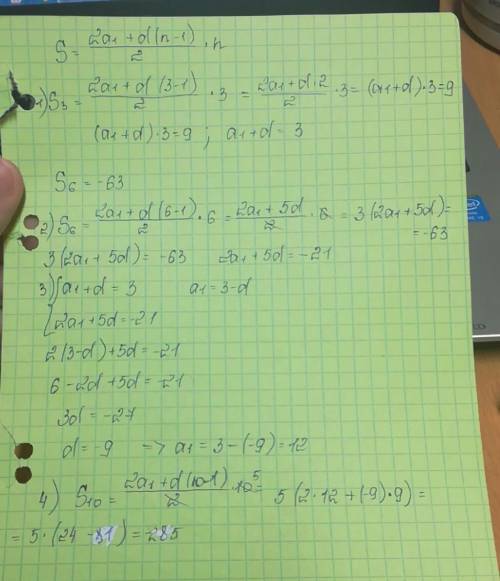 S = (2a₁ + d(n-1))/2 · n
1) S₃ = (2a₁ + d(3-1))/2 · 3 = (2a₁ + d·2)/2 · 3 = (a₁+d)·3 = 9
(a₁+d)·3 = 9 ; a₁+d = 3
S₆ = -63
2) S₆ = (2a₁ + d(6-1))/2 · 6 = (2a₁ + 5d)/2 · 6 = 3(2a₁+5d) =
= -63
3(2a₁ + 5d) = -63 2a₁ + 5d = -21
3) { a₁ + d = 3 a₁ = 3-d
2a₁ + 5d = -21
2(3-d) + 5d = -21
6 - 2d + 5d = -21
3d = -27
d = -9 => a₁ = 3 - (-9) = 12
4) S₁₀ = (2a₁ + d(10-1))/2 · 10 5 = 5(2·12 + (-9)·9) =
= 5·(24 - 81) = -285